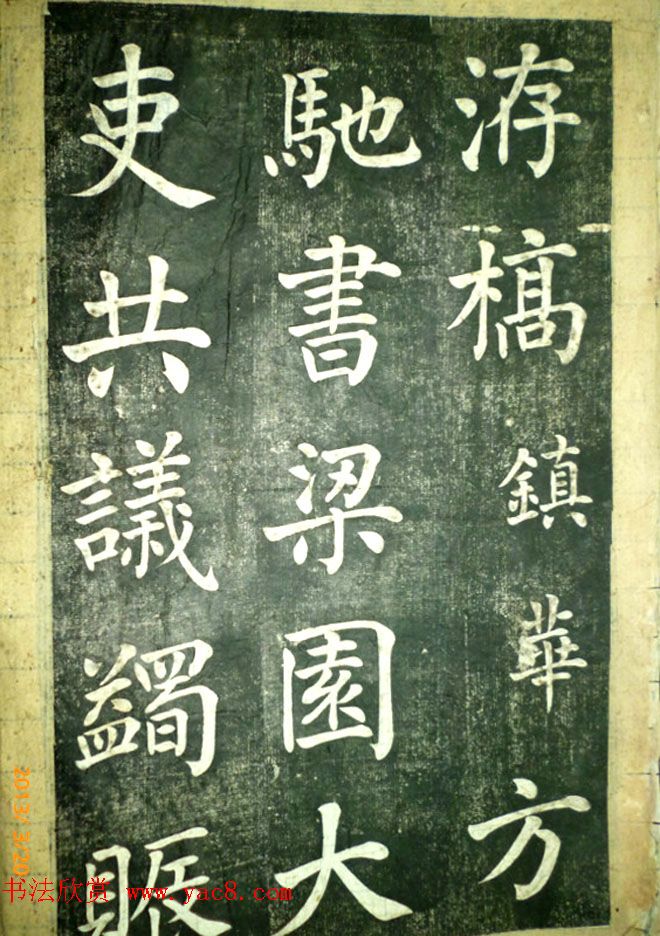 洊槁鎮華方
馳書梁園大
吏共議蠲賑
2013/ 3/20
书法欣赏 www.yac8.com